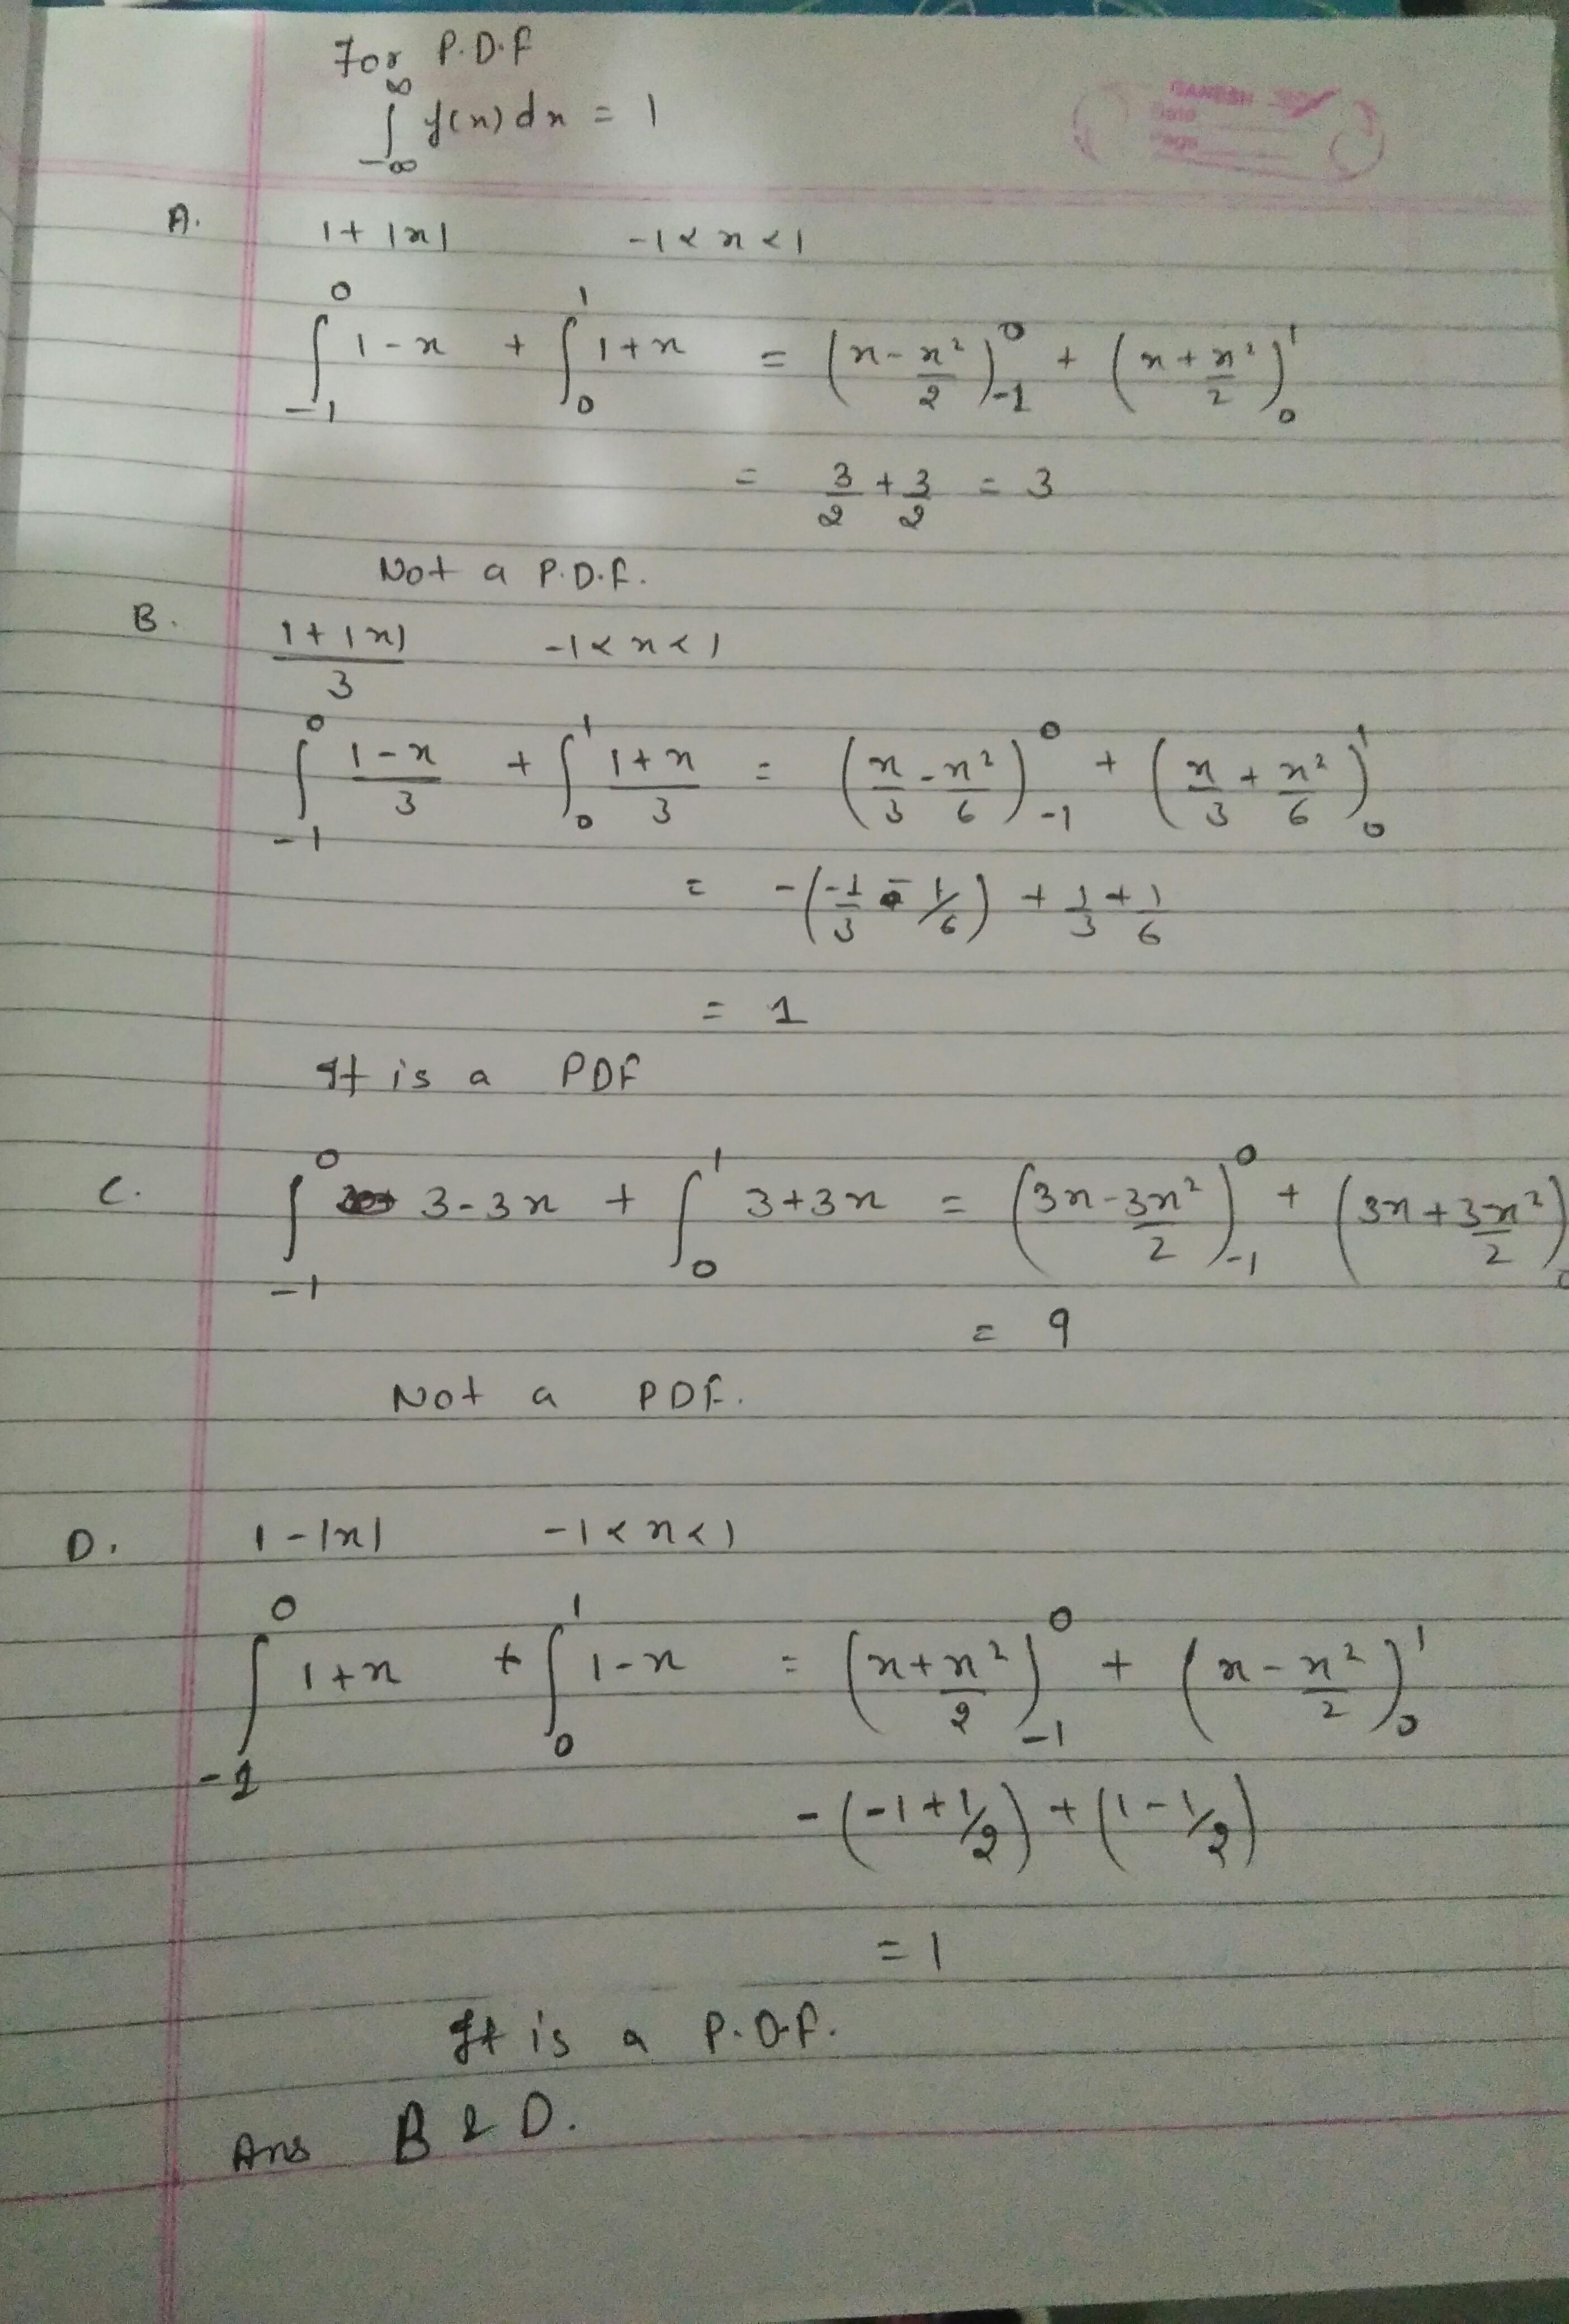 For P.D.F
∫_{-∞}^{∞} f(x) dx = 1
GANESH
Date
Page
A. 1 + |x| -1 < x < 1
∫_{-1}^{0} 1-x + ∫_{0}^{1} 1+x = (x - x²/2)_{-1}^{0} + (x + x²/2)_{0}^{1}
= 3/2 + 3/2 = 3
Not a P.D.F.
B. (1+|x|)/3 -1 < x < 1
∫_{-1}^{0} (1-x)/3 + ∫_{0}^{1} (1+x)/3 = (x/3 - x²/6)_{-1}^{0} + (x/3 + x²/6)_{0}^{1}
= -(-1/3 - 1/6) + 1/3 + 1/6
= 1
It is a PDF
C. ∫_{-1}^{0} 3-3x + ∫_{0}^{1} 3+3x = (3x - 3x²/2)_{-1}^{0} + (3x + 3x²/2)_{0}
= 9
Not a PDF.
D. 1-|x| -1 < x < 1
∫_{-1}^{0} 1+x + ∫_{0}^{1} 1-x = (x + x²/2)_{-1}^{0} + (x - x²/2)_{0}^{1}
-(-1 + 1/2) + (1 - 1/2)
= 1
It is a P.D.F.
Ans B & D.